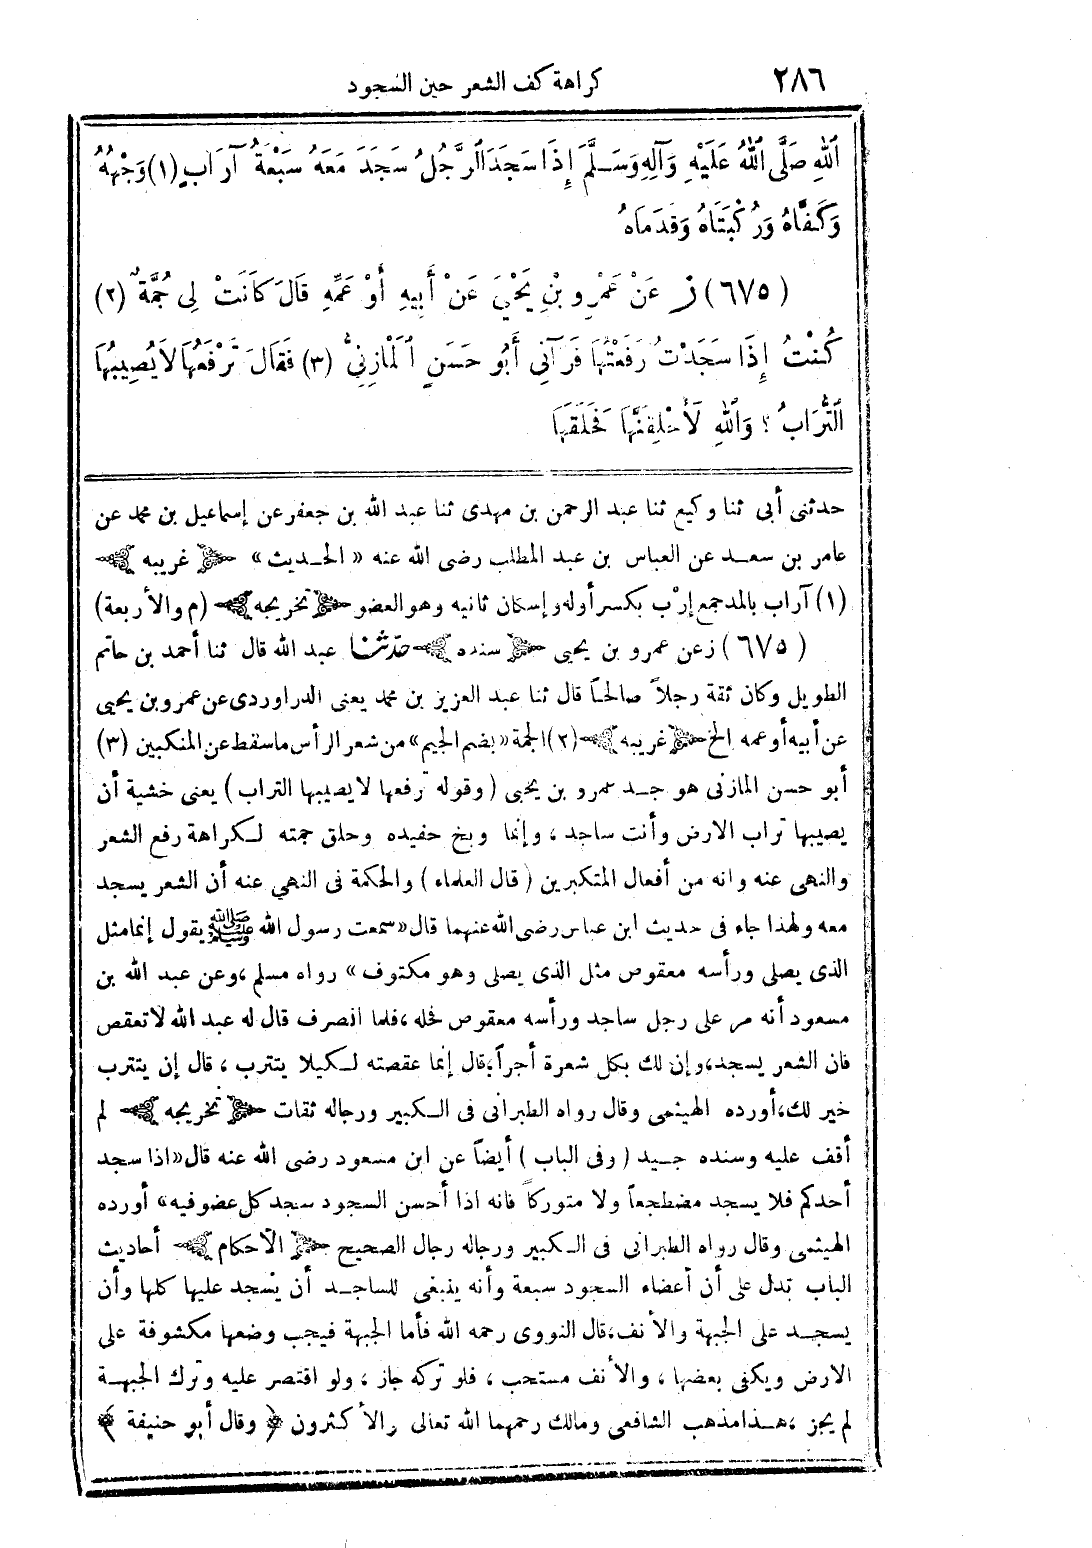 ٢٨٦ كراهة كف الشعر حين السجود
اللهِ صَلَّى اللهُ عَلَيْهِ وَآلِهِ وَسَلَّمَ إِذَا سَجَدَ الرَّجُلُ سَجَدَ مَعَهُ سَبْعَةُ آرَابٍ (١) وَجْهُهُ
وَكَفَّاهُ وَرُكْبَتَاهُ وَقَدَمَاهُ
(٦٧٥) ز عَنْ عَمْرِو بْنِ يَحْيَى عَنْ أَبِيهِ أَوْ عَمِّهِ قَالَ كَانَتْ لِى جُمَّةٌ (٢)
كُنْتُ إِذَا سَجَدْتُ رَفَعْتُهَا فَرَآنِى أَبُو حَسَنٍ الْمَازِنِىُّ (٣) فَقَالَ تَرْفَعُهَا لَا يُصِيبُهَا
التُّرَابُ ؟ وَاللهِ لَأَحْلِقَنَّهَا فَحَلَقَهَا
حدثنى أبى ثنا وكيع ثنا عبد الرحمن بن مهدى ثنا عبد الله بن جعفر عن إسماعيل بن محمد عن
عامر بن سعد عن العباس بن عبد المطلب رضى الله عنه « الحديث » ﴿ غريبه ﴾
(١) آراب بالمد جمع إرْب بكسر أوله وإسكان ثانيه وهو العضو ﴿ تخريجه ﴾ (م والأربعة)
(٦٧٥) ز عن عمرو بن يحيى ﴿ سنده ﴾ حدثنا عبد الله قال ثنا أحمد بن حاتم
الطويل وكان ثقة رجلاً صالحاً قال ثنا عبد العزيز بن محمد يعنى الدراوردى عن عمرو بن يحيى
عن أبيه أو عمه الخ ﴿ غريبه ﴾ (٢) الجمة «بضم الجيم» من شعر الرأس ما سقط عن المنكبين (٣)
أبو حسن المازنى هو جد عمرو بن يحيى (وقوله ترفعها لا يصيبها التراب) يعنى خشية أن
يصيبها تراب الارض وأنت ساجد ، وإنما وبخ حفيده وحلق جمته لكراهة رفع الشعر
والنهى عنه وانه من أفعال المتكبرين (قال العلماء) والحكمة فى النهي عنه أن الشعر يسجد
معه ولهذا جاء فى حديث ابن عباس رضى الله عنهما قال «سمعت رسول الله ﷺ يقول إنما مثل
الذى يصلى ورأسه معقوص مثل الذى يصلى وهو مكتوف» رواه مسلم ، وعن عبد الله بن
مسعود أنه مر على رجل ساجد ورأسه معقوص فحله ، فلما انصرف قال له عبد الله لا تعقص
فان الشعر يسجد ، وإن لك بكل شعرة أجراً ، قال إنما عقصته لكيلا يتترب ، قال إن يتترب
خير لك ، أورده الهيثمى وقال رواه الطبرانى فى الكبير ورجاله ثقات ﴿ تخريجه ﴾ لم
أقف عليه وسنده جيد (وفى الباب) أيضاً عن ابن مسعود رضى الله عنه قال «اذا سجد
أحدكم فلا يسجد مضطجعاً ولا متوركاً فانه اذا أحسن السجود سجد كل عضو فيه» أورده
الهيثمى وقال رواه الطبرانى فى الكبير ورجاله رجال الصحيح ﴿ الأحكام ﴾ أحاديث
الباب تدل على أن أعضاء السجود سبعة وأنه ينبغى للساجد أن يسجد عليها كلها وأن
يسجد على الجبهة والأنف ، قال النووى رحمه الله فأما الجبهة فيجب وضعها مكشوفة على
الارض ويكفى بعضها ، والأنف مستحب ، فلو تركه جاز ، ولو اقتصر عليه وترك الجبهة
لم يجز ، هذا مذهب الشافعى ومالك رحمهما الله تعالى والأكثرون ﴿ وقال أبو حنيفة ﴾